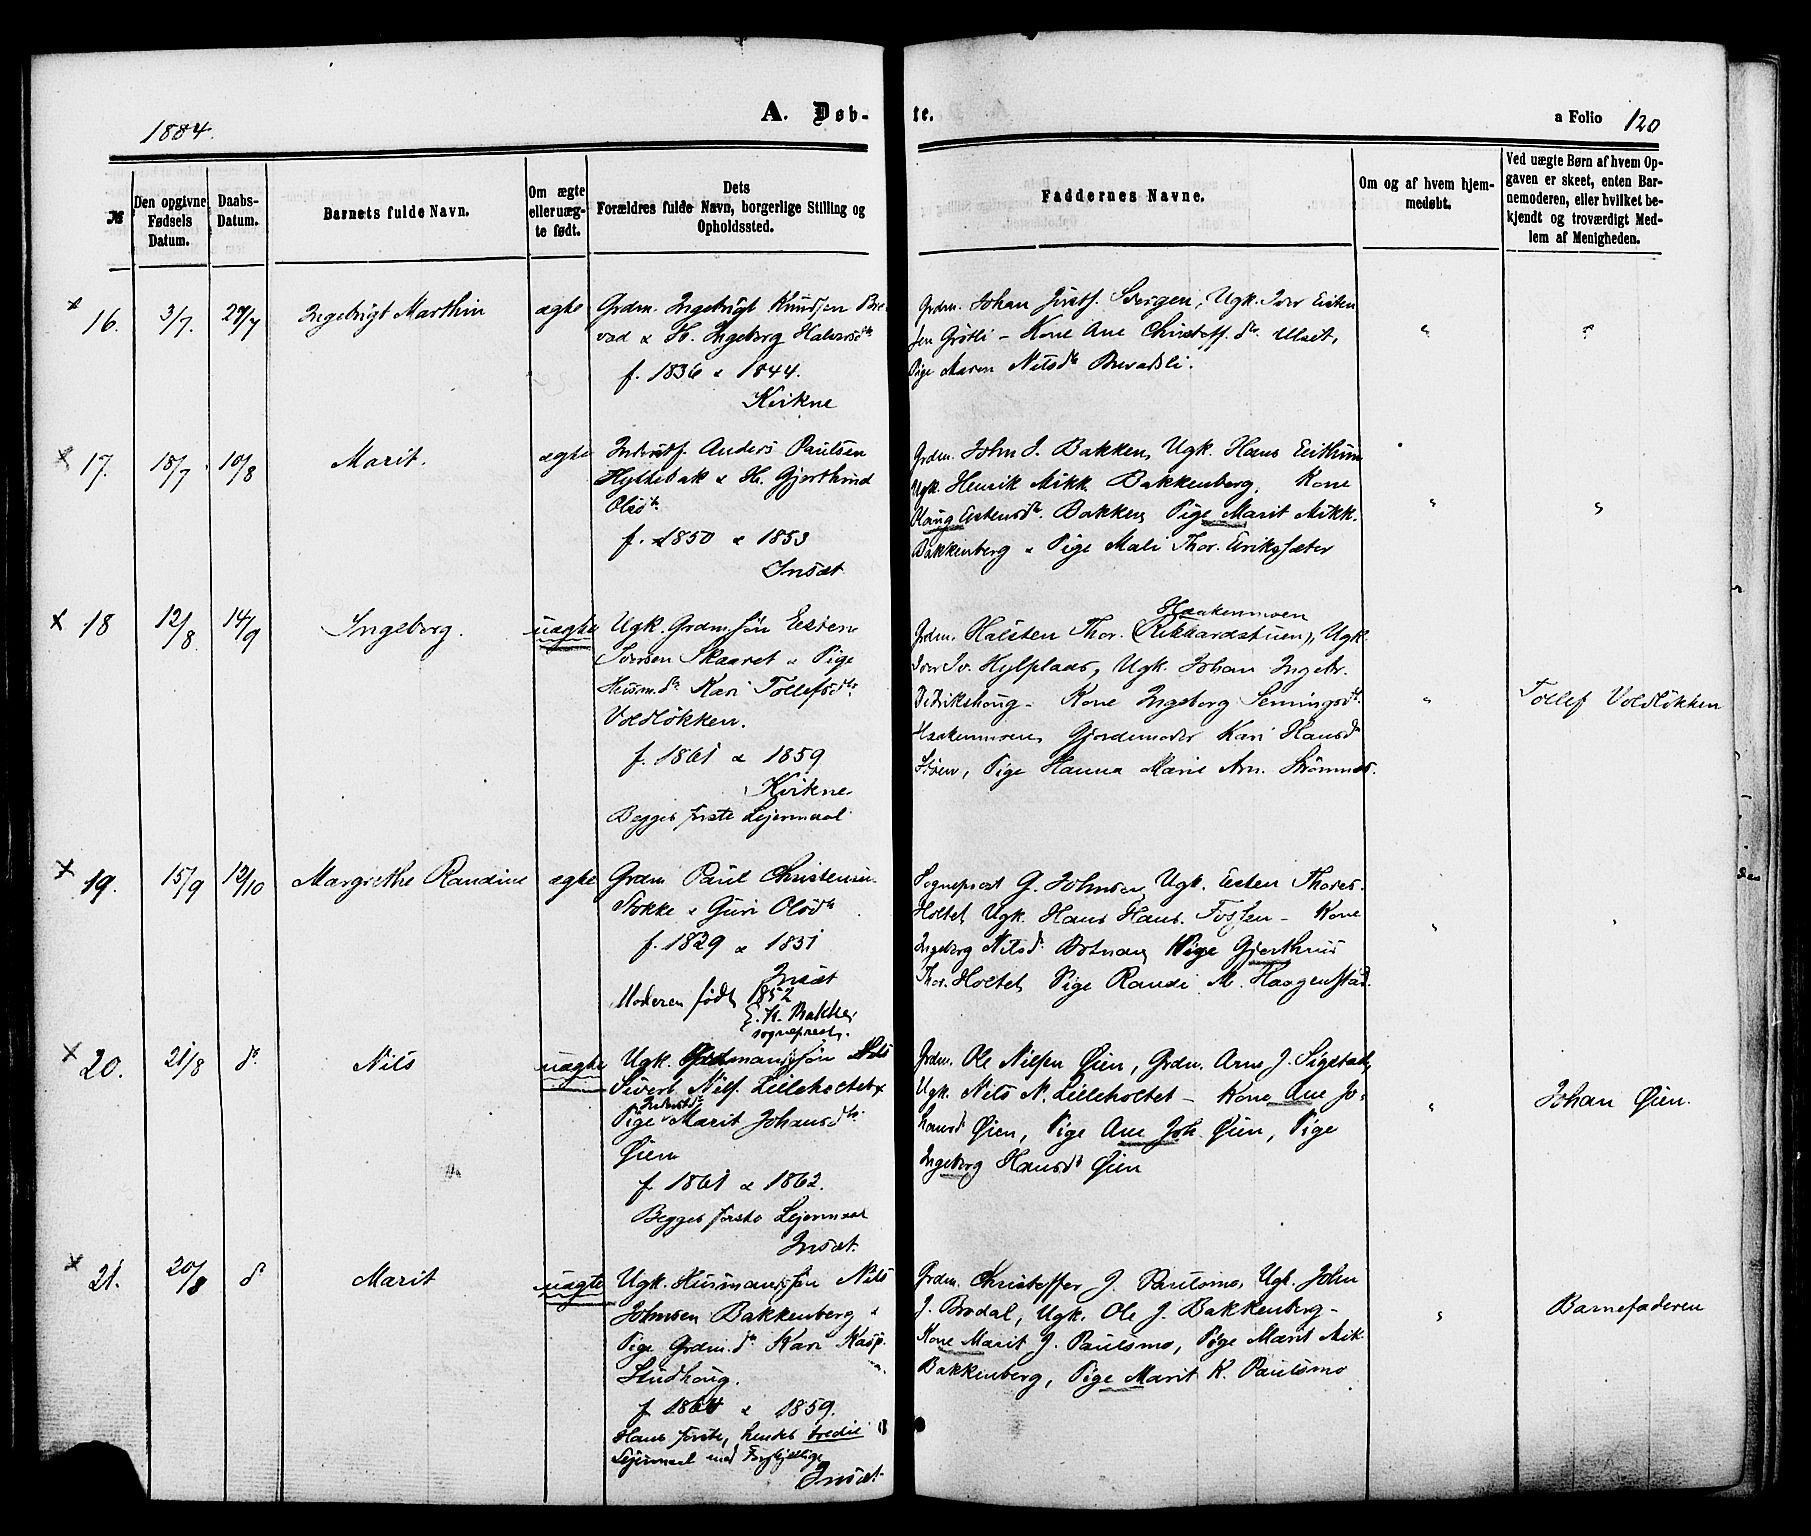 1884.
A. Døb-
te.
a Folio 120
№
Den opgivne Fødsels Datum.
Daabs-Datum.
Barnets fulde Navn.
Om ægte eller uæg-te født.
Dets Forældres fulde Navn, borgerlige Stilling og Opholdssted.
Faddernes Navne.
Om og af hvem hjem-medøbt.
Ved uægte Børn af hvem Op-gaven er skeet, enten Bar-nemoderen, eller hvilket be-kjendt og troværdigt Med-lem af Menigheden.
16. 3/7. 27/7 Ingebrigt Marthin ægte
Grdm. Ingebrigt Knudsen Bre-
vad & H. Ingeborg Halvorsdtr
f. 1836 & 1844.
Kvikne
Grdm. Johan Svergen, Ugk. Iver Esten
sen Grøtli - Kone Ane Christoff.dtr Ulset,
Pige Maren Nilsdtr Brevadsli.
17. 18/7 10/8 Marit. ægte
Inderstf. Anders Paulsen
Hyldebak & H. Gjerthrud
Olsdtr
f. 1850 & 1853
Insæt
Grdm. John J. Bakken, Ugk. Hans
Ugk. Henrik Mikk. Bakkenberg, Kone
Haug Estensdtr. Bakken, Pige Marit Mikk.
Bakkenberg & Pige Mali Thor. Eriksæter
18 12/8. 14/9 Ingeborg. uægte
Ugk. Grdm.søn Esten
Iversen Skaaret & Pige
Husm.dtr Kari Tollefsdtr
Voldløkken.
f. 1861 & 1859
Kvikne
Begges første Lejermaal
Haakenmoen
Grdm. Halsten Thor. (Rikkardstuen), Ugk.
Iver Iv. Hylplads, Ugk. Johan Ingebr.
Didrikshoug - Kone Ingeborg Semmingsdtr.
Haakenmoen, Gjordemoder Kari Hansdtr
Støen, Pige Hanna Marie Arn. Strømmes.
Tollef Voldløkken
19. 15/9 12/10 Margrethe Randine ægte
Grdm Paul Christensen
Stokke & Guri Olsdtr
f. 1829 & 1831
Insæt
Moderen født 1852
E. K. Bakke,
sogneprest.
Sogneprest G. Johnsen, Ugk. Esten Thores.
Holtet Ugk. Hans Hans. Fossen - Kone
Ingeborg Nilsdtr Pige Gjerthrud
Thor. Holtet, Pige Randi M. Haagenstad.
20. 21/8 do Nils uægte
Ugk. Grdmandssøn Nils
Sivert Nils. Lilleholtet &
Inderstdtr
Pige Marit Johansdtr
Øien
f. 1861 & 1862.
Begges første Lejermaal
Insæt.
Grdm. Ole Nilsen Øien, Grdm. Arne J. Sigstad,
Ugk. Nils N. Lilleholtet - Kone Ane Jo-
hansd Øien, Pige Ane Joh. Øien, Pige
Ingeborg Hansdtr Øien
Johan Øien.
21. 20/8 do Marit uægte
Ugk. Husmandssøn Nils
Johnsen Bakkenberg &
Pige Grdm.dtr Kari Kasp.
Studhoug.
f. 1864 & 1859.
Hans første, hendes tredie
Lejermaal med Forskjellige
Insæt.
Grdm. Christoffer J. Paulsmo, Ugk. John
J. Brodal, Ugk. Ole J. Bakkenberg -
Kone Marit J. Paulsmo, Pige Marit Mik
Bakkenberg, Pige Marit K. Paulsmo
Barnefaderen